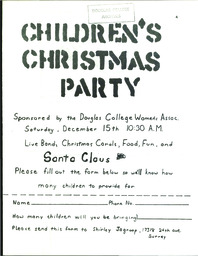 CHILDREN'S
CHRISTMAS
PARTY
Sponsored by the Douglas College Womens Assoc.
Saturday, December 15th 10:30 A.M.
Live Band, Christmas Carols, Food, Fun, and
Santa Claus
Please fill out the form below so we'll know how
many children to provide for
Name Phone No
How many children will you be bringing
Please send this form to Shirley Jagroop, 24th ave.
Surrey